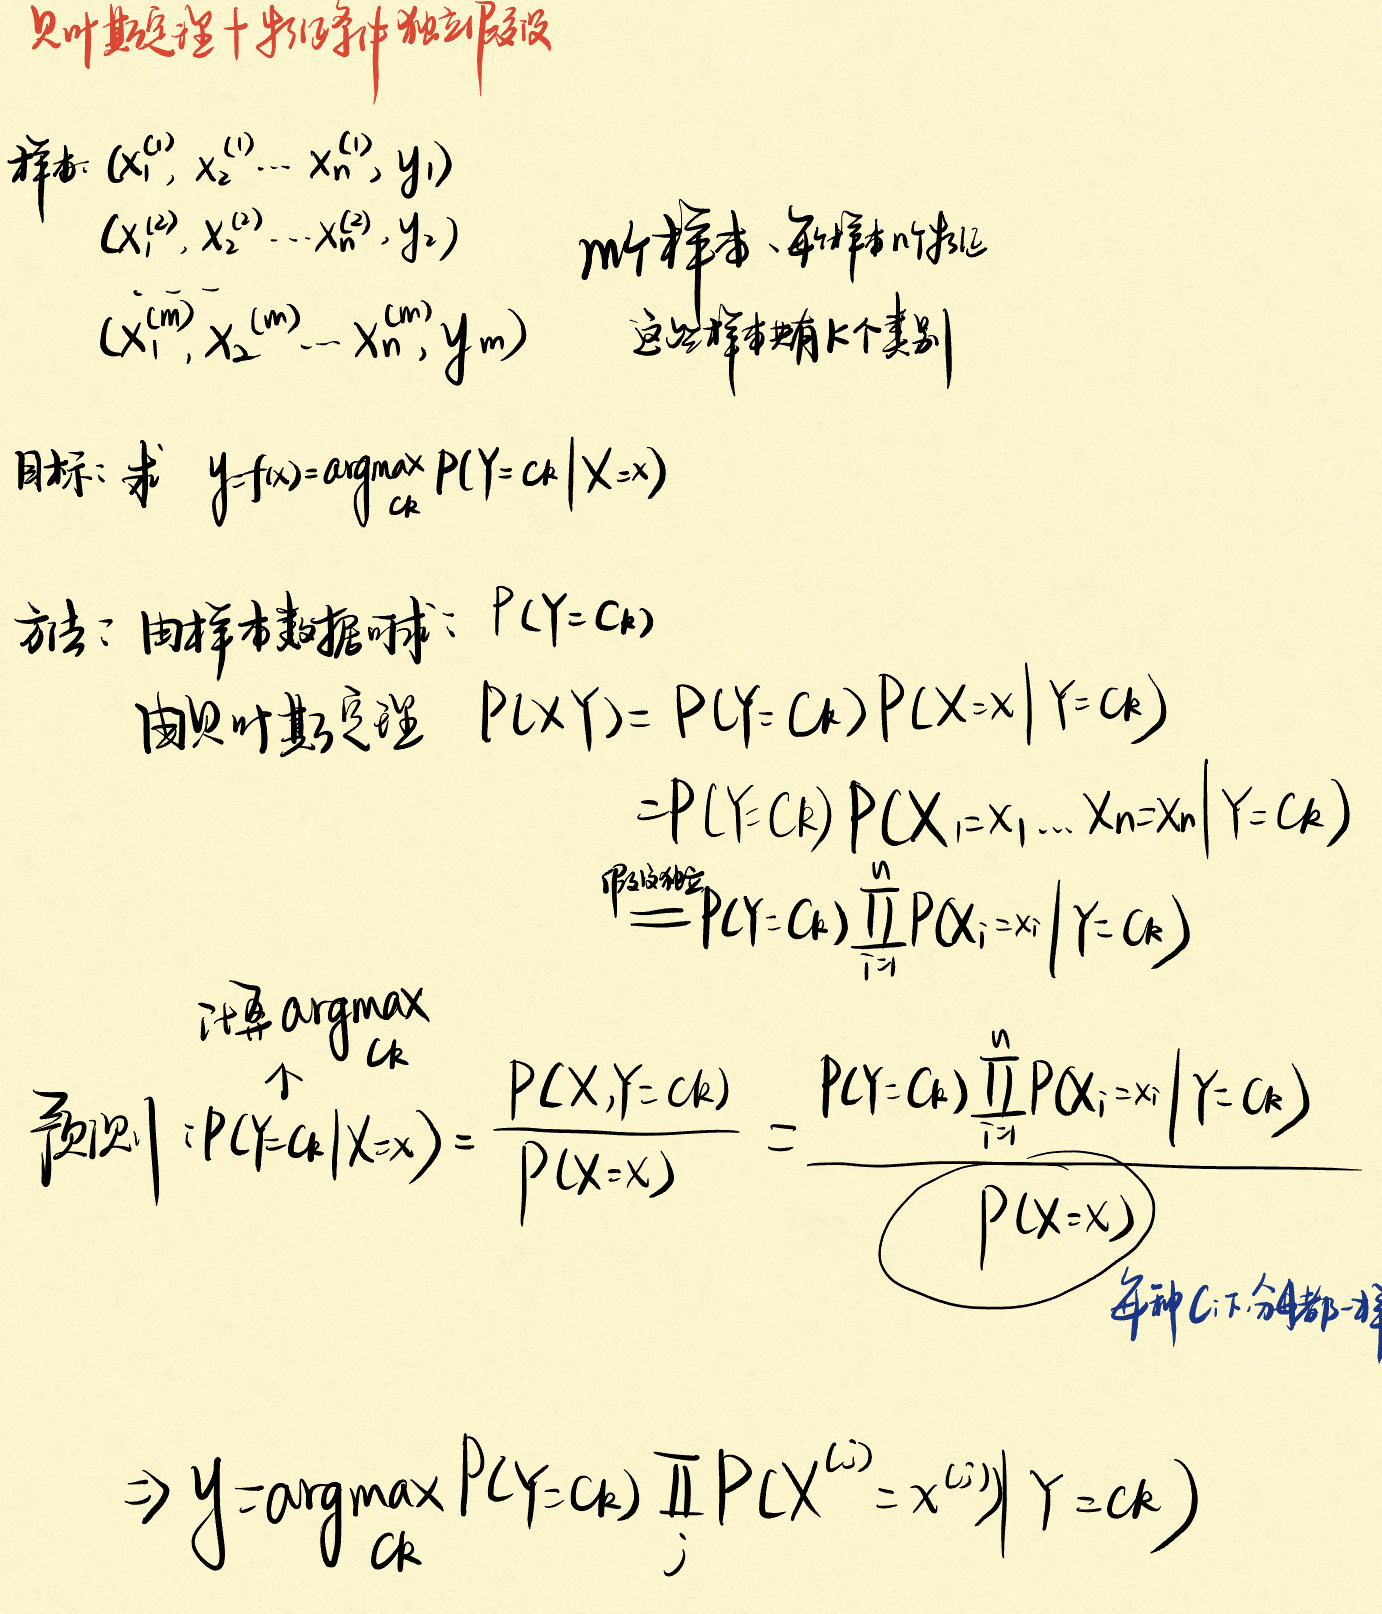 贝叶斯定理+特征条件独立假设
样本: (x₁⁽¹⁾, x₂⁽¹⁾ ... xₙ⁽¹⁾, y₁)
(x₁⁽²⁾, x₂⁽²⁾ ... xₙ⁽²⁾, y₂)
m个样本、每个样本n个特征
(x₁⁽ᵐ⁾, x₂⁽ᵐ⁾ ... xₙ⁽ᵐ⁾, yₘ)
这些样本共有K个类别
目标: 求 y=f(x)=argmax_{Ck} P(Y=Ck|X=x)
方法: 由样本数据可求: P(Y=Ck)
由贝叶斯定理 P(XY)=P(Y=Ck)P(X=x|Y=Ck)
=P(Y=Ck)P(X₁=x₁...Xₙ=xₙ|Y=Ck)
假设独立
=P(Y=Ck)∏_{i=1}^{n}P(Xᵢ=xᵢ|Y=Ck)
计算argmax_{Ck}
↑
预测: P(Y=Ck|X=x) = P(X,Y=Ck)/P(X=x) = P(Y=Ck)∏_{i=1}^{n}P(Xᵢ=xᵢ|Y=Ck)/P(X=x)
每种Cᵢ下,分母都一样
⇒ y=argmax_{Ck} P(Y=Ck)∏_{j}P(X⁽ʲ⁾=x⁽ʲ⁾|Y=Ck)